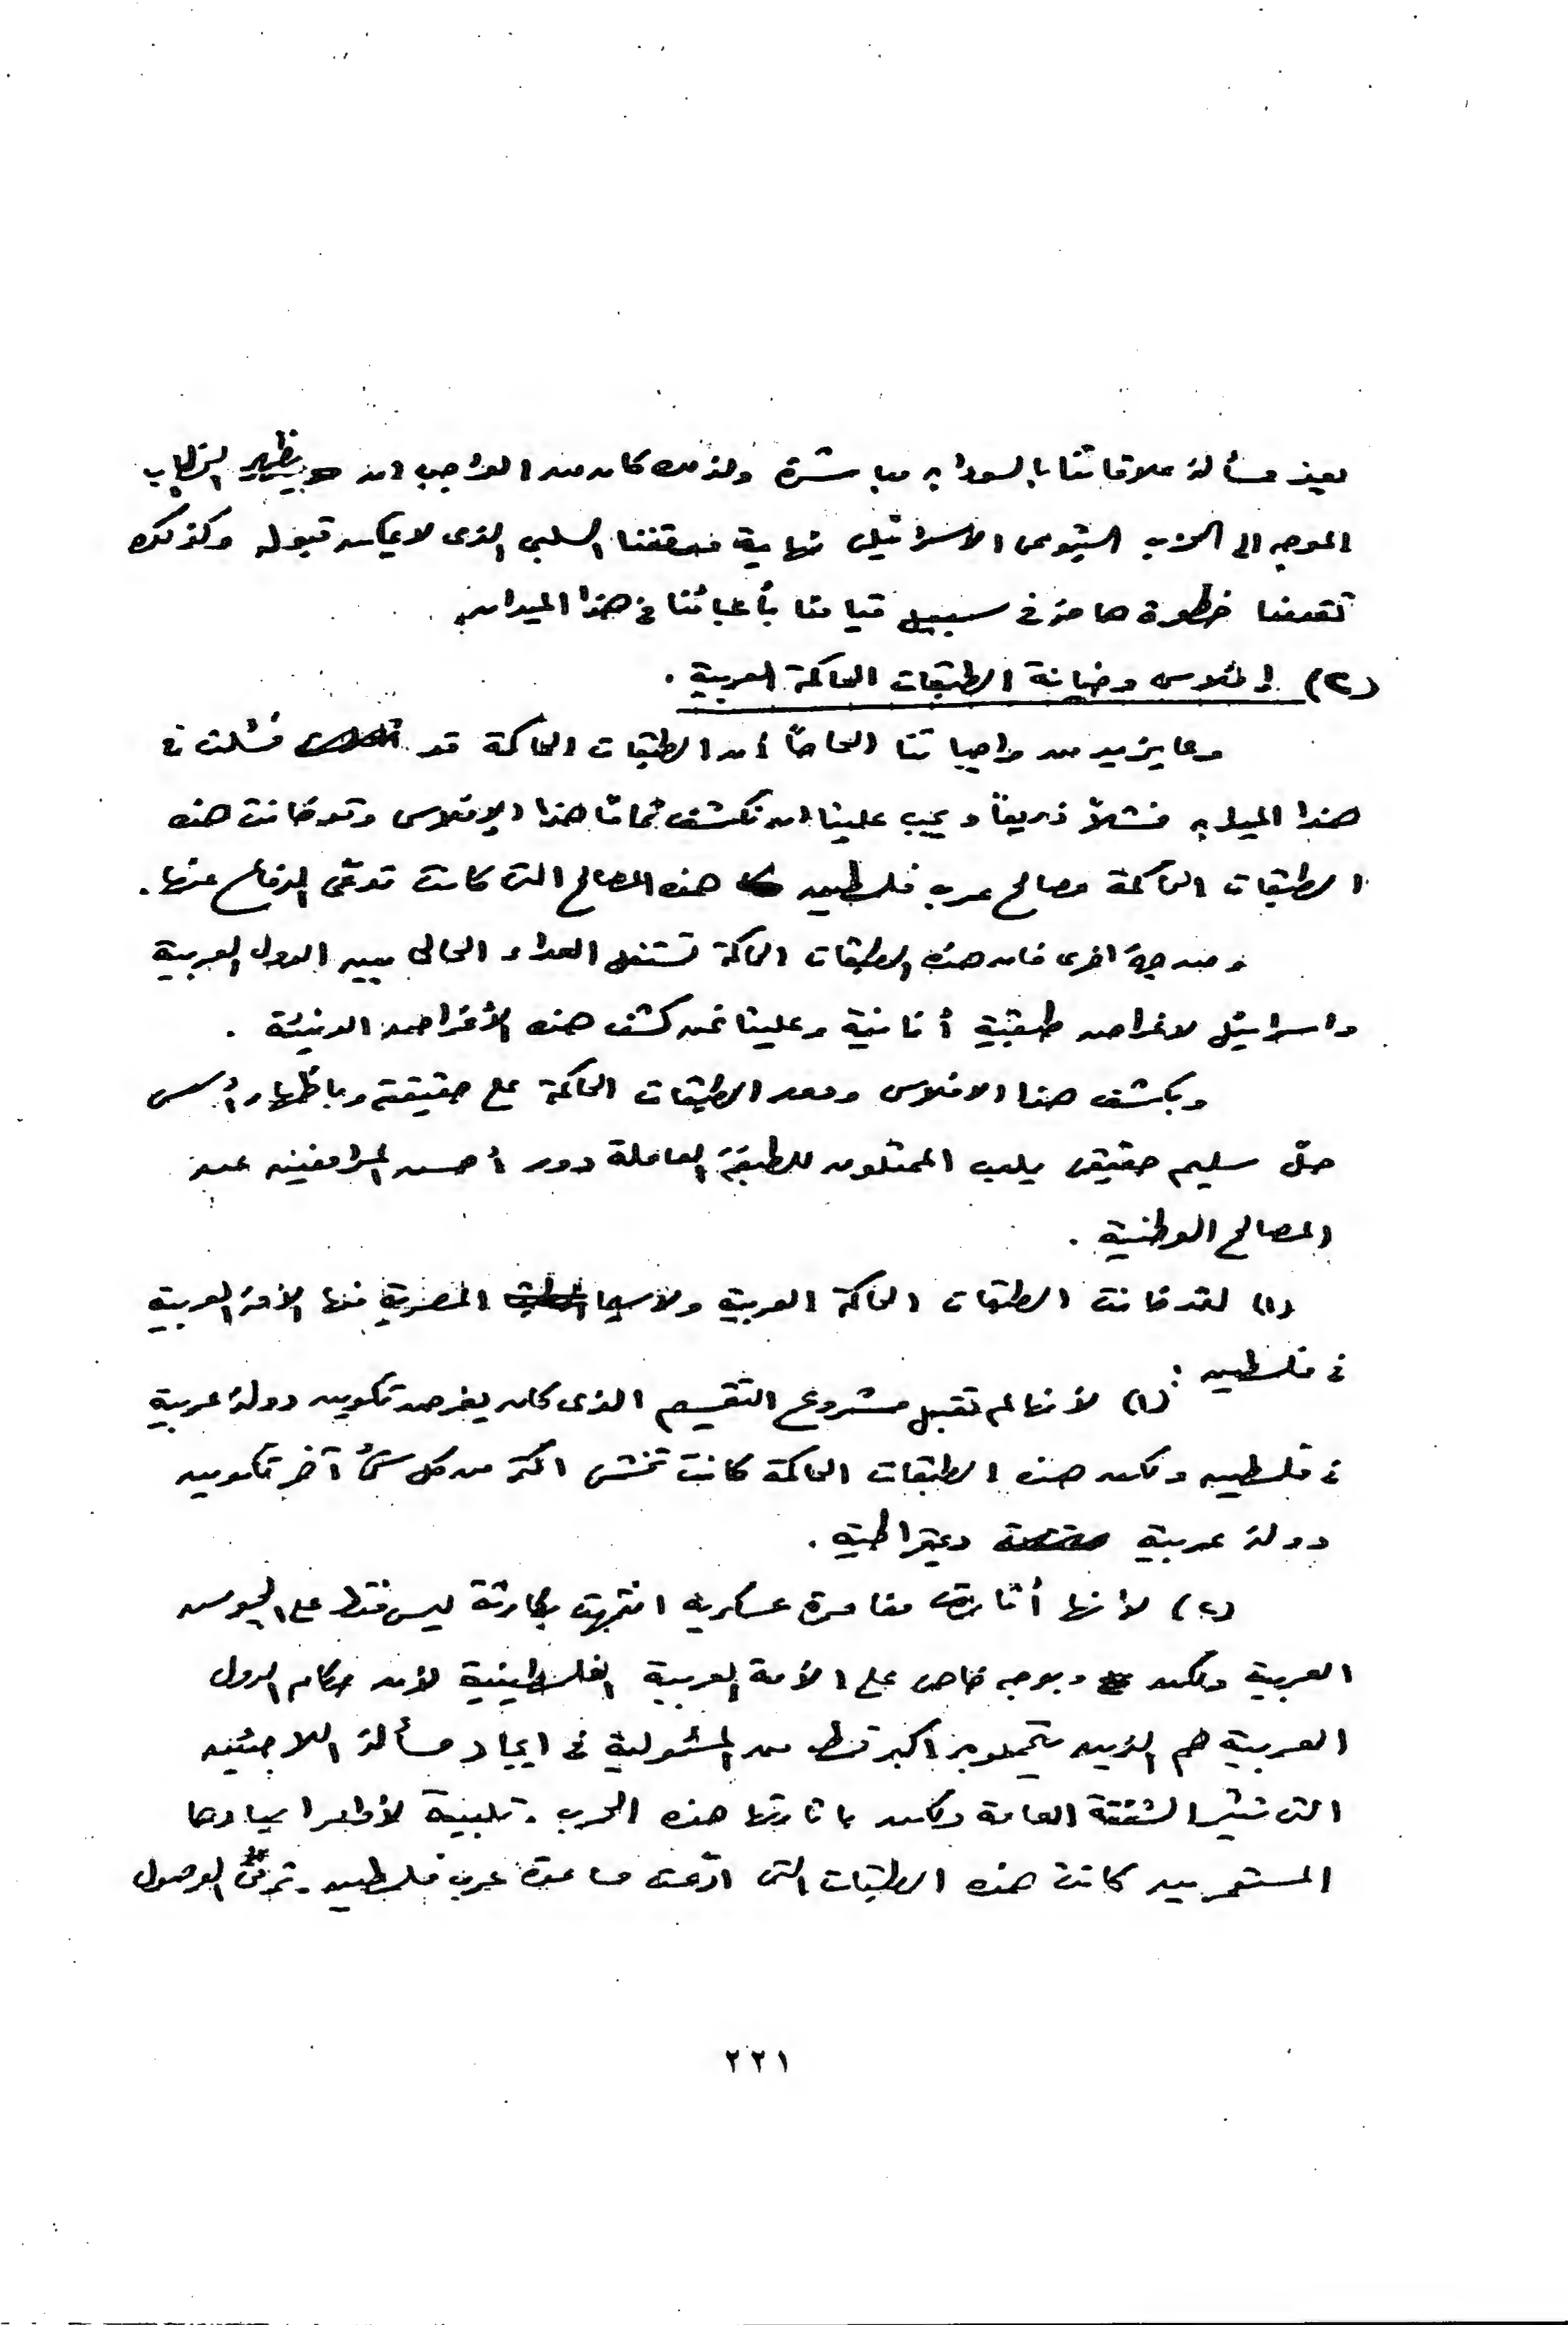 بعيد مسألة علاقاتنا بالسودان مباشرة ولذلك كان من الواجب ان يظهر الخطاب
الموجه الى الحزب الشيوعى الاسرائيلى نهاية موقفنا السلبى الذى لا يمكن قبوله وكذلك
تقدمنا خطوة هامة فى سبيل قيامنا بأعبائنا فى هذا الميدان.
(٢) إفلاس وخيانة الطبقات الحاكمة العربية .
ومما يزيد من واجباتنا الخاصة أن الطبقات الحاكمة قد فشلت فى
هذا الميدان فشلاً ذريعاً ويجب علينا ان نكشف تماماً هذا الإفلاس وقد خانت هذه
الطبقات الحاكمة مصالح عرب فلسطين هذه المصالح التى كانت تدعى الدفاع عنها.
ومن جهة اخرى فان هذه الطبقات الحاكمة تستغل العداء الحالى بين الدول العربية
واسرائيل لاغراض طبقية أنانية وعلينا نحن كشف هذه الأغراض الدنيئة .
وبكشف هذا الافلاس ودور الطبقات الحاكمة على حقيقته وباظهار أسس
حل سليم حقيقى يلعب الممثلون للطبقة العاملة دور أحسن المدافعين عن
المصالح الوطنية .
(١) لقد خانت الطبقات الحاكمة العربية ولاسيما المصرية منها الأمة العربية
فى فلسطين :
(١) لأنها لم تقبل مشروع التقسيم الذى كان يفرض تكوين دولة عربية
فى فلسطين ولكن هذه الطبقات الحاكمة كانت تخشى اكثر من كل شئ آخر تكوين
دولة عربية ديمقراطية .
(٢) لأنها أثارت مغامرة عسكرية انتهت بكارثة ليس فقط على الجيوش
العربية ولكن وبوجه خاص على الأمة العربية الفلسطينية لأن حكام الدول
العربية هم الذين يتحملون اكبر قسط من المسئولية فى ايجاد مسألة اللاجئين
التى تثير الشفقة العامة ولكن باثارتها هذه الحرب . تلبية لأوامر اسيادها
المستعمرين كانت هذه الطبقات التى ادّعت مساعدة عرب فلسطين . ترمى الوصول
٢٢١